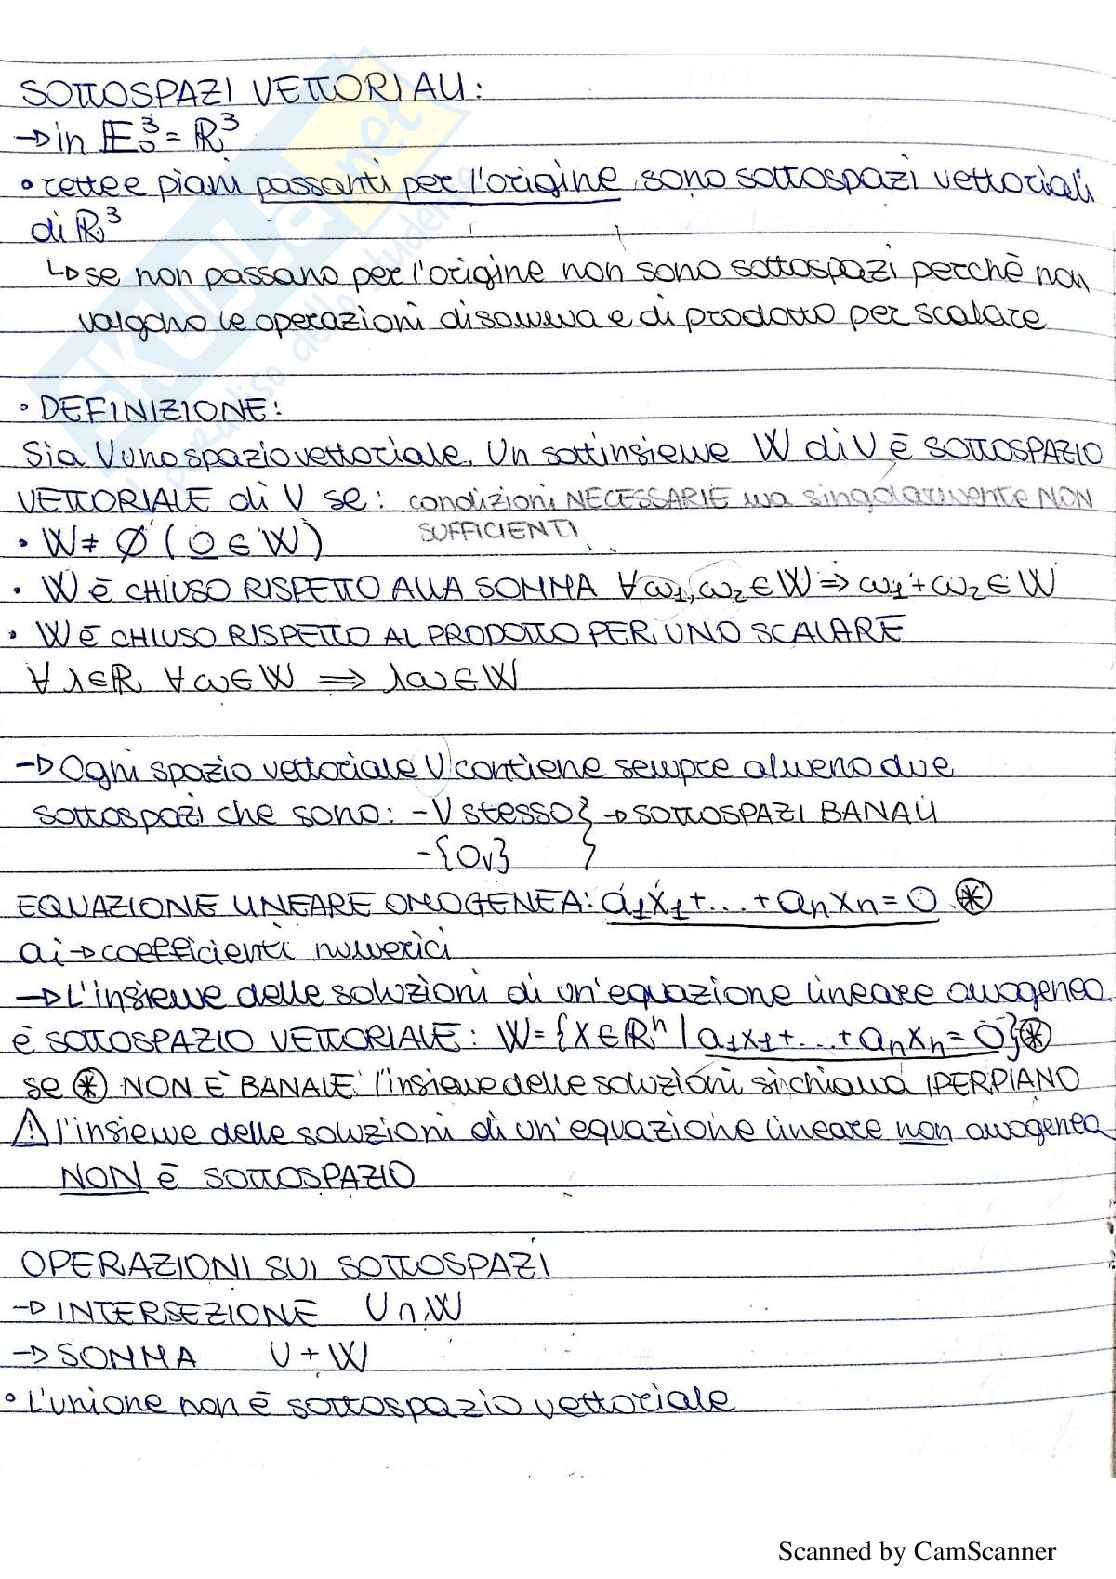 SOTTOSPAZI VETTORIALI:
→ in E₀³ = ℝ³
• rette e piani passanti per l'origine sono sottospazi vettoriali
di ℝ³
↳ se non passano per l'origine non sono sottospazi perchè non
valgono le operazioni di somma e di prodotto per scalare
• DEFINIZIONE:
Sia V uno spazio vettoriale. Un sottinsieme W di V è SOTTOSPAZIO
VETTORIALE di V se: condizioni NECESSARIE ma singolarmente NON
SUFFICIENTI
• W ≠ ∅ (0 ∈ W)
• W è CHIUSO RISPETTO ALLA SOMMA ∀ω₁,ω₂ ∈ W ⇒ ω₁+ω₂ ∈ W
• W È CHIUSO RISPETTO AL PRODOTTO PER UNO SCALARE
∀ λ∈ℝ ∀ ω∈W ⇒ λω∈W
→ Ogni spazio vettoriale V contiene sempre almeno due
sottospazi che sono: - V stesso } → SOTTOSPAZI BANALI
- {0v} }
EQUAZIONE LINEARE OMOGENEA: a₁x₁+...+aₙxₙ=0 ⊛
ai → coefficienti numerici
→ L'insieme delle soluzioni di un'equazione lineare omogenea
è SOTTOSPAZIO VETTORIALE: W={X∈ℝⁿ | a₁x₁+...+aₙxₙ=0}⊛
se ⊛ NON È BANALE l'insieme delle soluzioni si chiama IPERPIANO
⚠ l'insieme delle soluzioni di un'equazione lineare non omogenea
NON è SOTTOSPAZIO
OPERAZIONI SUI SOTTOSPAZI
→ INTERSEZIONE U∩W
→ SOMMA U+W
• L'unione non è sottospazio vettoriale
Scanned by CamScanner